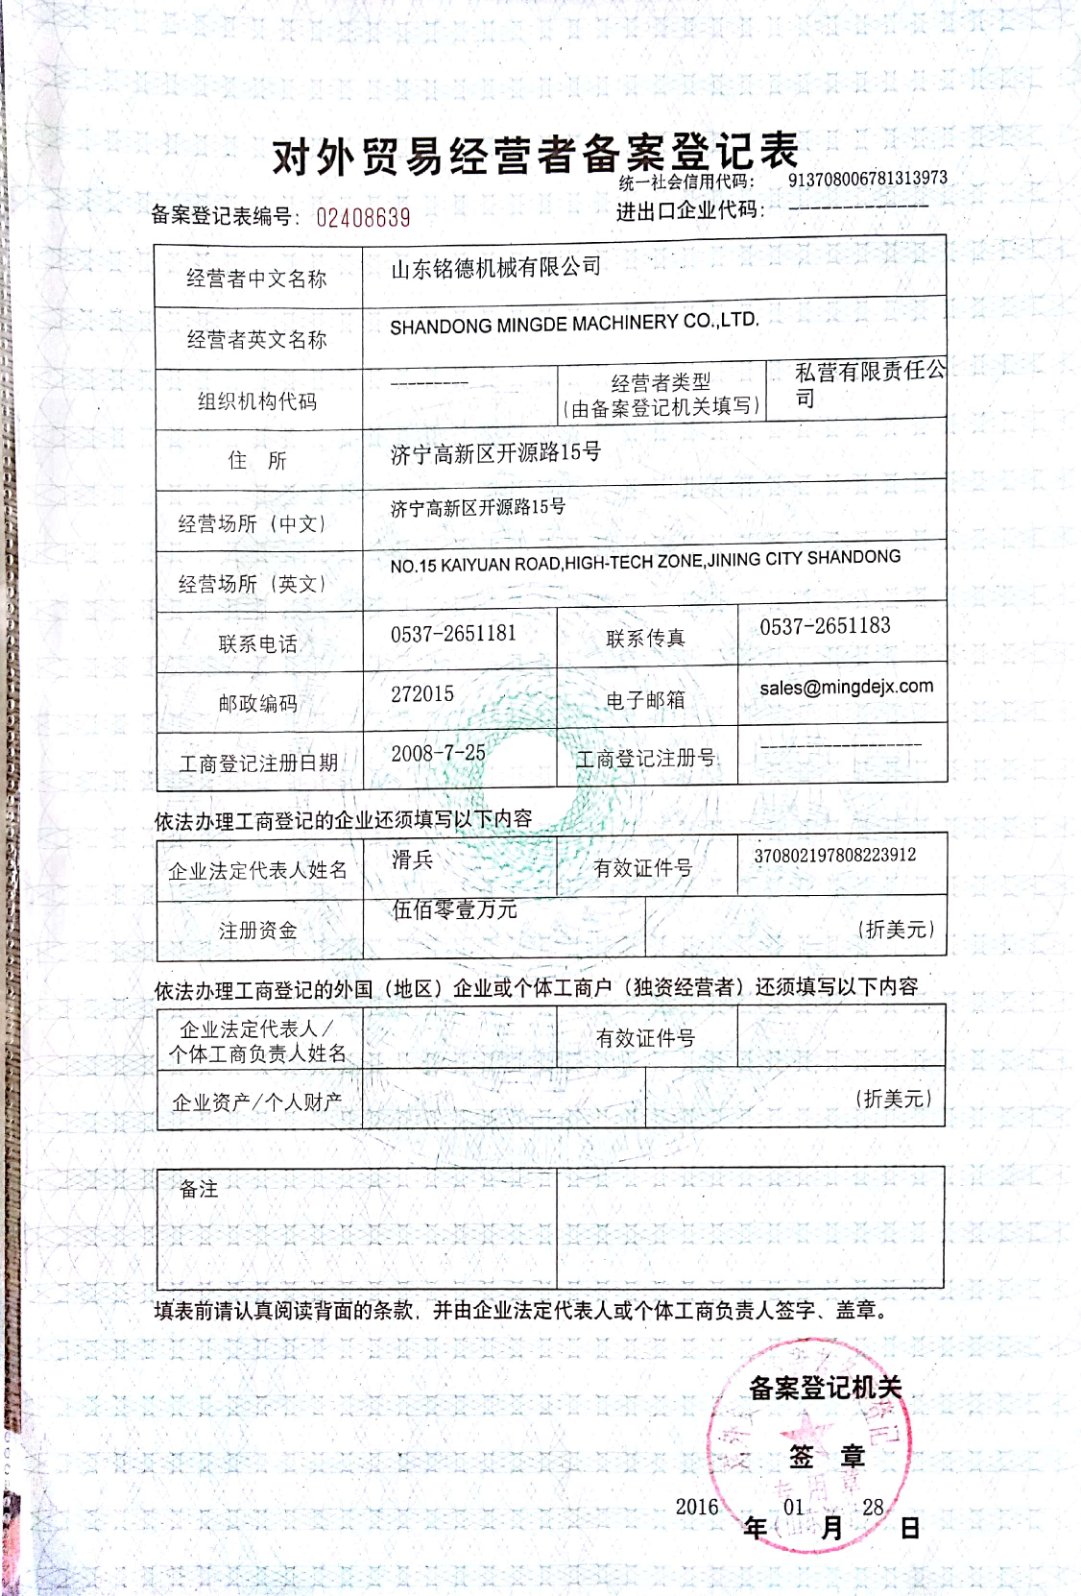 对外贸易经营者备案登记表
统一社会信用代码： 913708006781313973
备案登记表编号： 02408639
进出口企业代码： -------------
经营者中文名称 山东铭德机械有限公司
经营者英文名称 SHANDONG MINGDE MACHINERY CO.,LTD.
组织机构代码 --------- 经营者类型 私营有限责任公
(由备案登记机关填写) 司
住 所 济宁高新区开源路15号
经营场所（中文） 济宁高新区开源路15号
经营场所（英文） NO.15 KAIYUAN ROAD,HIGH-TECH ZONE,JINING CITY SHANDONG
联系电话 0537-2651181 联系传真 0537-2651183
邮政编码 272015 电子邮箱 sales@mingdejx.com
工商登记注册日期 2008-7-25 工商登记注册号 ------------------
依法办理工商登记的企业还须填写以下内容
企业法定代表人姓名 滑兵 有效证件号 370802197808223912
注册资金 伍佰零壹万元 (折美元)
依法办理工商登记的外国（地区）企业或个体工商户（独资经营者）还须填写以下内容
企业法定代表人/ 有效证件号
个体工商负责人姓名
企业资产/个人财产 (折美元)
备注
填表前请认真阅读背面的条款，并由企业法定代表人或个体工商负责人签字、盖章。
备案登记机关
签 章
专用章
2016 年 01 月 28 日